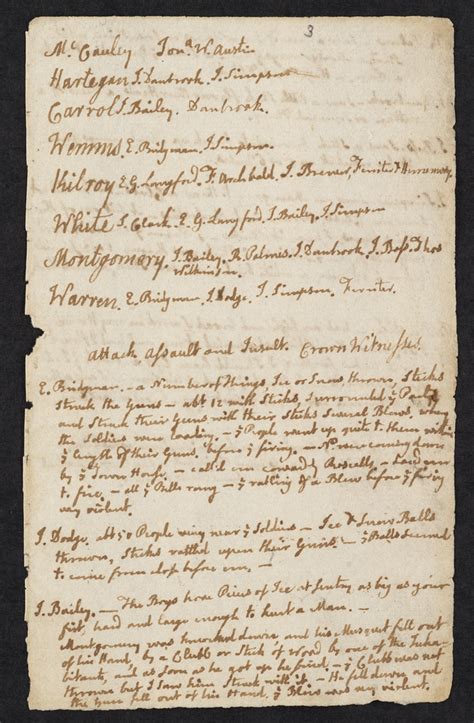 3
McCauley Jonᵃ. W. Austin
Hartegan J. Danbrook. J. Simpson
Carrol J. Bailey. Danbrook.
Wemms. E. Bridgman. J. Simpson.
Kilroy E. G. Langford. F. Archbald. J. Brewer, Ferriter & Hemmenway
White J. Clark. E. G. Langford, J. Bailey. J. Simpson
Montgomery. J. Bailey. R. Palmes. J. Danbrook. J. Bass. Thos
Wilkinson.
Warren. E. Bridgman. J. Dodge. J. Simpson. Ferriter.
Attack, Assault and Insult. Crown Witnesses.
E. Bridgman. — a Number of Things, Ice or Snow, thrown, Sticks
Struck the Guns — abt 12 with Sticks, Surrounded ye Party
and Struck their Guns with their Sticks Several Blows, when
the Soldiers were loading. — ye People went up quite to them within
ye length of their Guns, before ye firing. — No. were coming down
by ye Town House. — call'd em cowardly Rascalls, — dared em
to fire. — all ye Bells rang — ye rattling of a Blow before ye firing
very violent.
J. Dodge. abt 50 People very near ye Soldiers — Ice & Snow Balls
thrown, Sticks rattled upon their Guns — ye Balls seemed
to come from close before em, —
J. Bailey. — The Boys hove Pieces of Ice at Sentry as big as your
fist, hard and large enough to hurt a Man. —
Montgomery was knocked down and his Musquet fell out
of his Hand, by a Clubb or Stick of Wood by one of the Inhabitants,
and as soon as he got up he fired. — ye Clubb was not
thrown but I saw him Struck with it. — He fell down, and
the Gun fell out of his Hand, ye Blow was very violent.